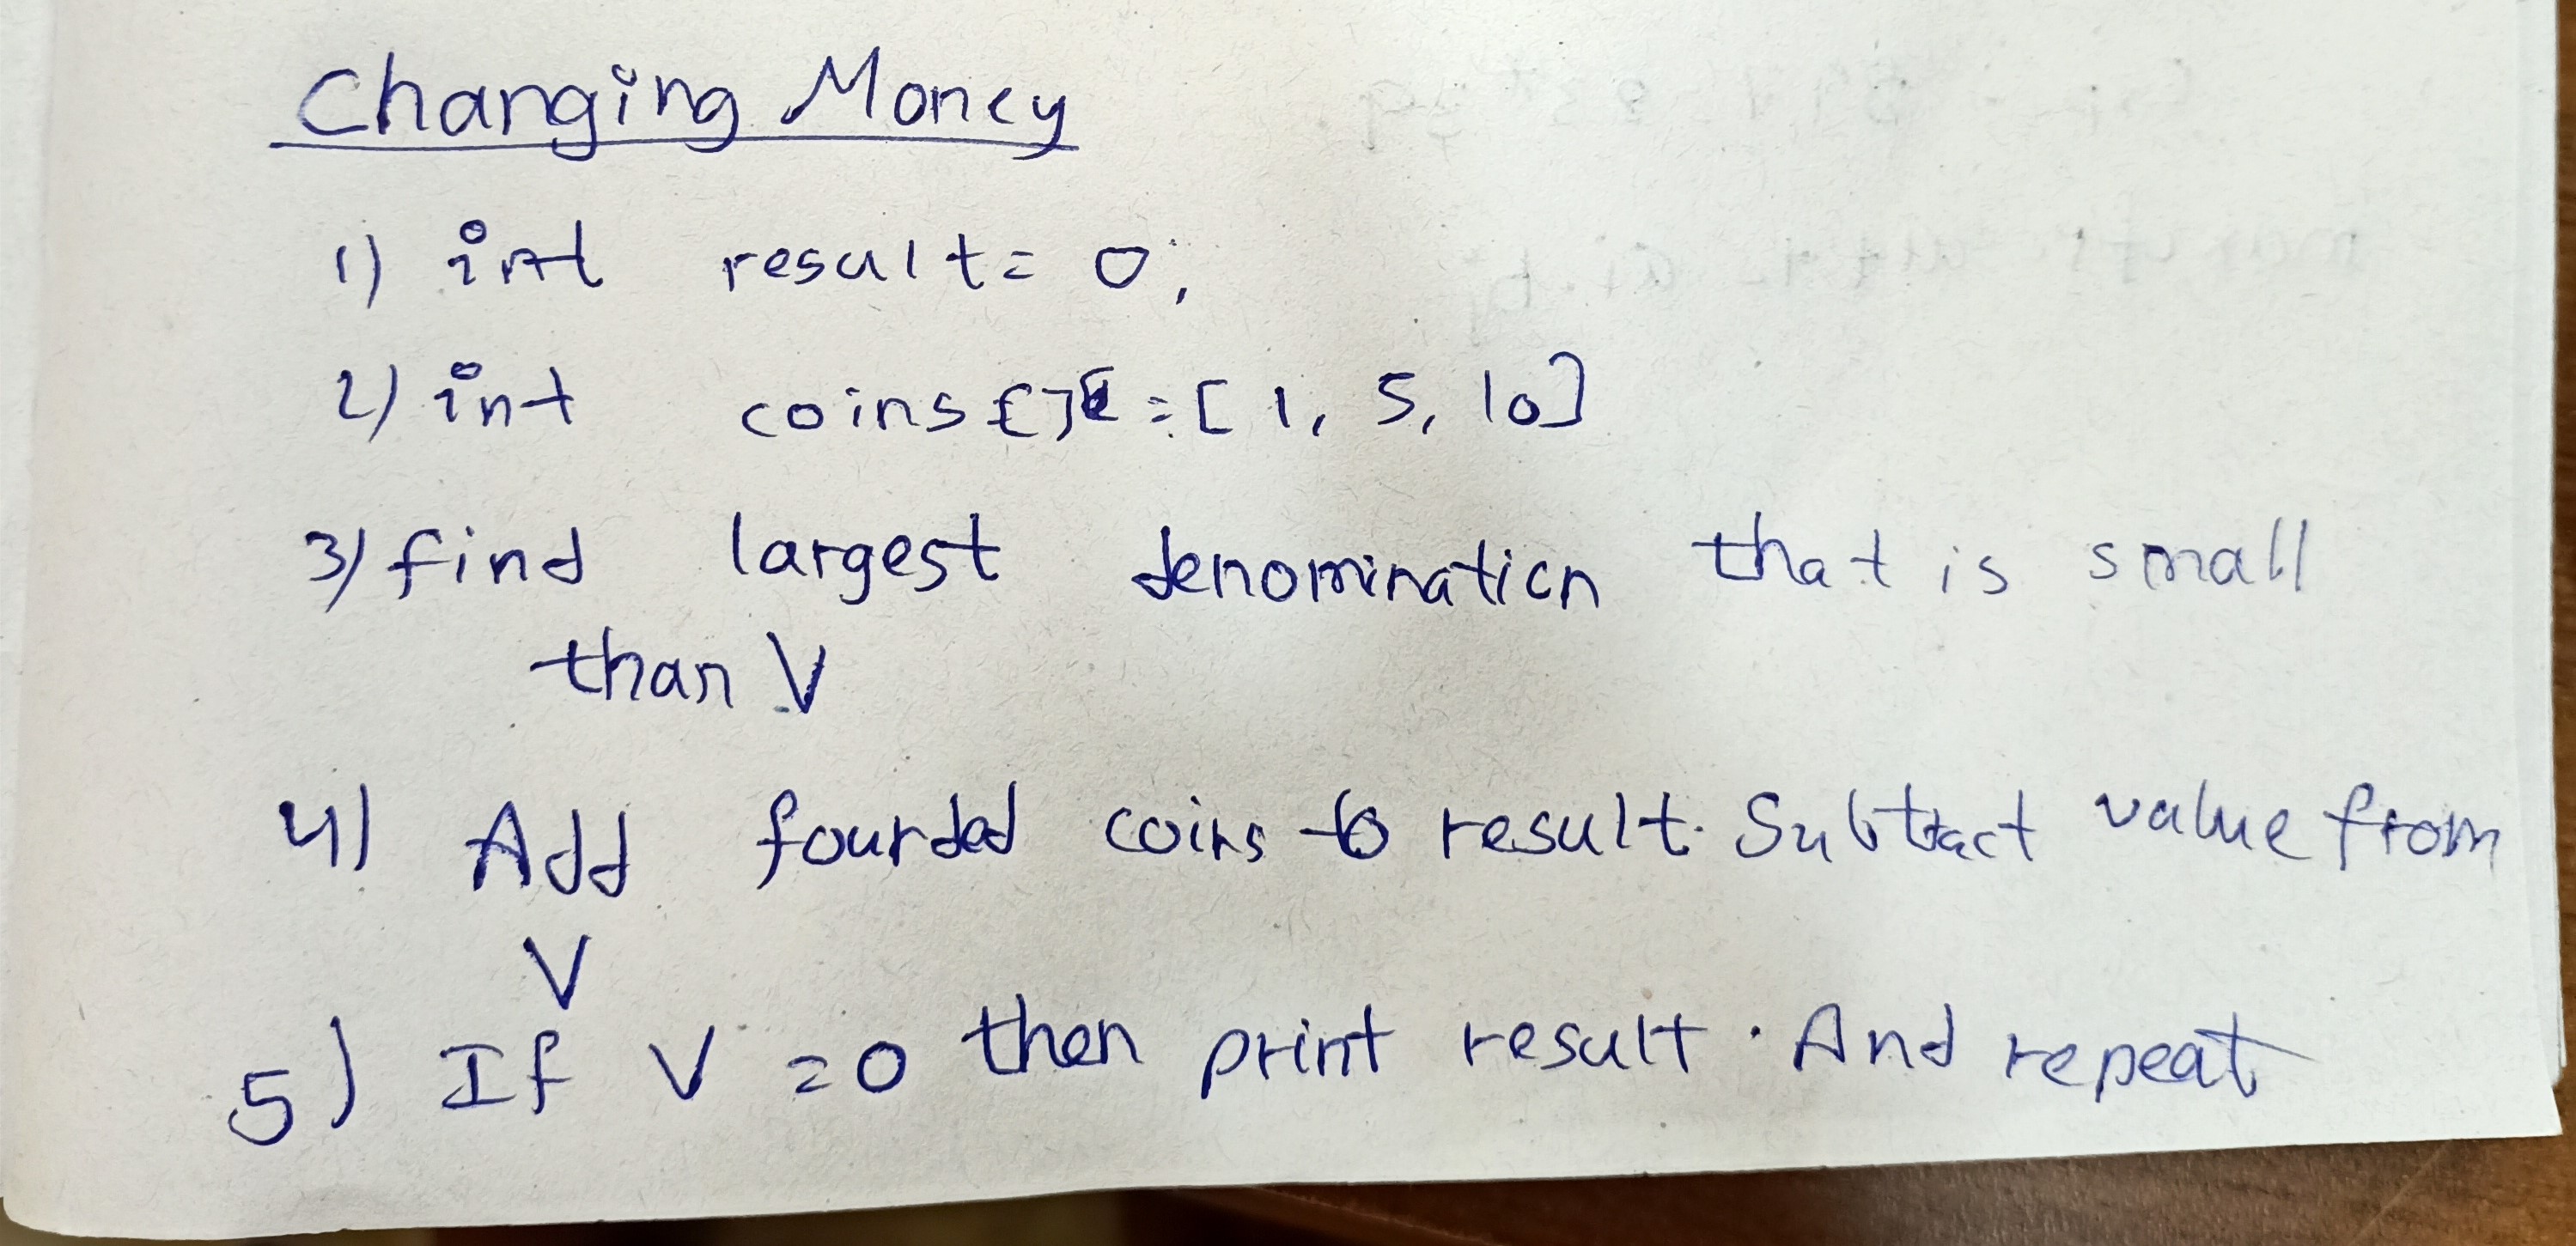 Changing Money
1) int result = 0;
2) int coins[] = [1, 5, 10]
3) find largest denomination that is small
than V
4) Add founded coins to result. Subtract value from
V
5) If V = 0 then print result. And repeat